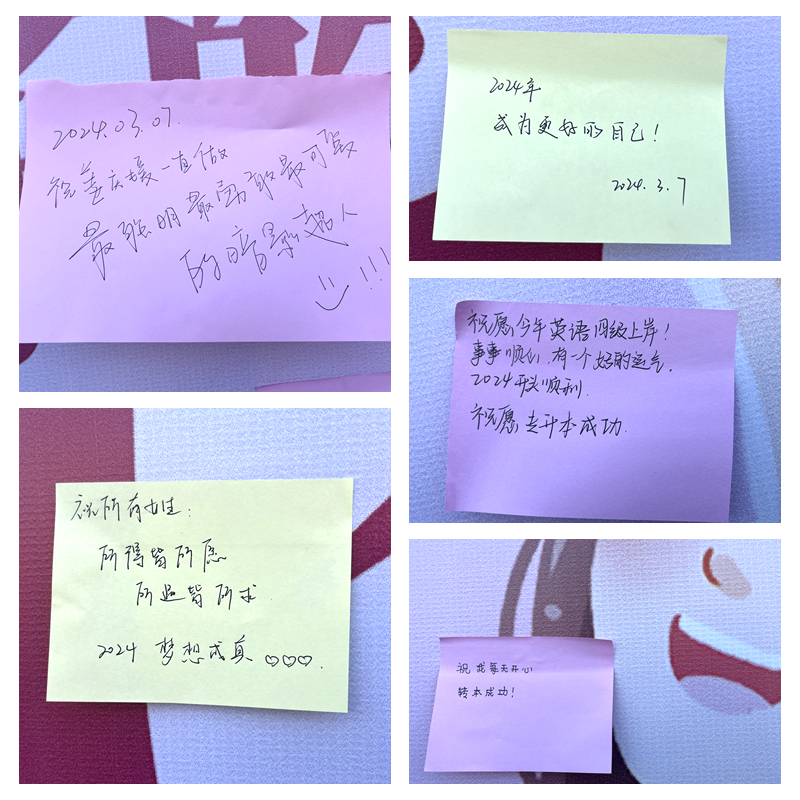 2024.03.07.
祝姜庆媛一直做
最聪明最勇敢最可靠
的暗影超人
!!!
2024年
成为更好的自己!
2024.3.7
祝愿今年英语四级上岸!
事事顺心.有一个好的运气.
2024开头顺利.
祝愿专升本成功.
祝所有女生:
所得皆所愿
所遇皆所求.
2024 梦想成真♡♡♡.
祝我每天开心
转本成功!